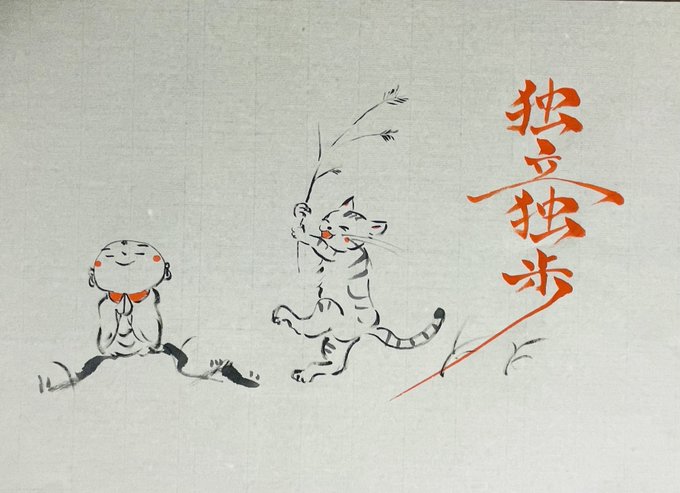 独立独歩